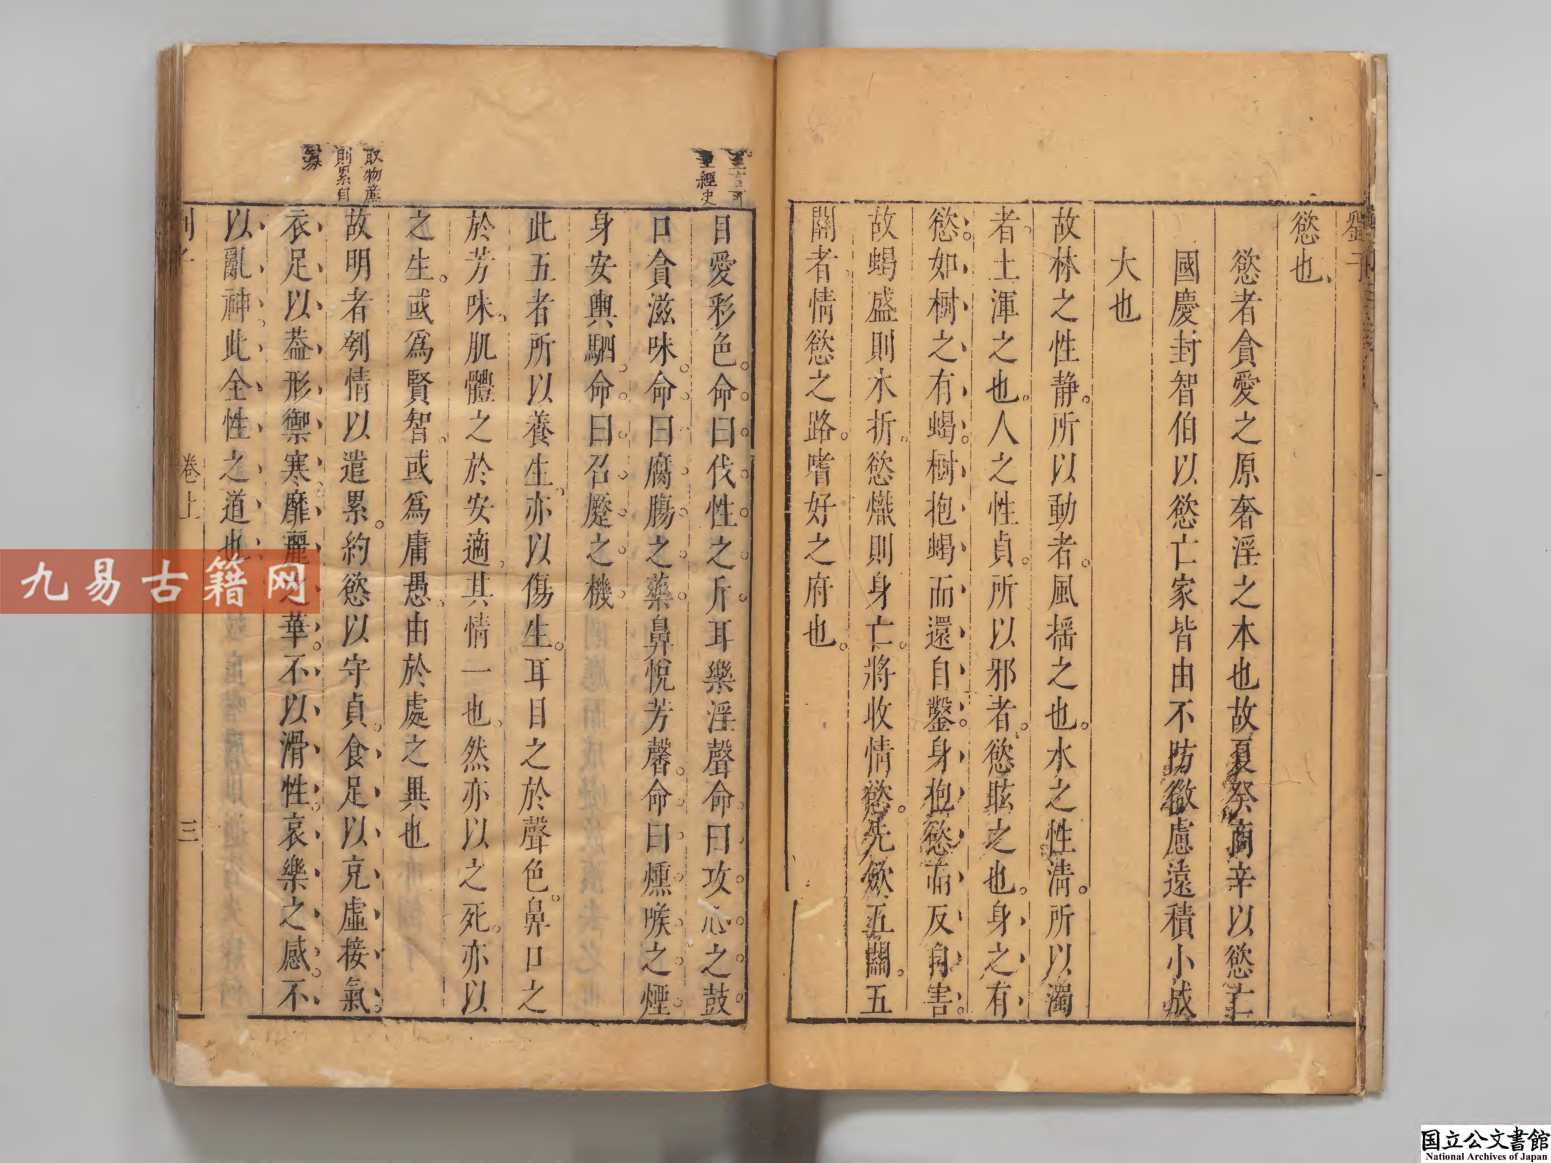 劉子
慾也
慾者貪愛之原奢淫之本也故夏癸商辛以慾亡
國慶封智伯以慾亡家皆由不防微慮遠積小成
大也
故林之性静。所以動者。風揺之也。水之性清。所以濁
者土渾之也。人之性貞。所以邪者。慾眩之也。身之有
慾。如樹之有蝎。樹抱蝎而還自鑿。身抱慾而反自害。
故蝎盛則木折。慾熾則身亡。將收情慾。先斂五關。五
關者情慾之路。嗜好之府也。
目愛彩色。命曰伐性之斤。耳樂淫聲。命曰攻心之鼓
口貪滋味。命曰腐腸之藥。鼻悅芳馨。命曰燻喉之煙
身安輿駟。命曰召蹷之機
此五者所以養生。亦以傷生。耳目之於聲色。鼻口之
於芳味。肌體之於安適。其情一也。然亦以之死。亦以
之生。或爲賢智。或爲庸愚。由於處之異也
故明者刳情以遣累。約慾以守貞。食足以充虛接氣。
衣足以葢形禦寒。靡麗之華。不以滑性。哀樂之感。不
以亂神。此全性之道也
卷上
三
經史
取物蔗
則累自
寡
九易古籍网
国立公文書館
National Archives of Japan